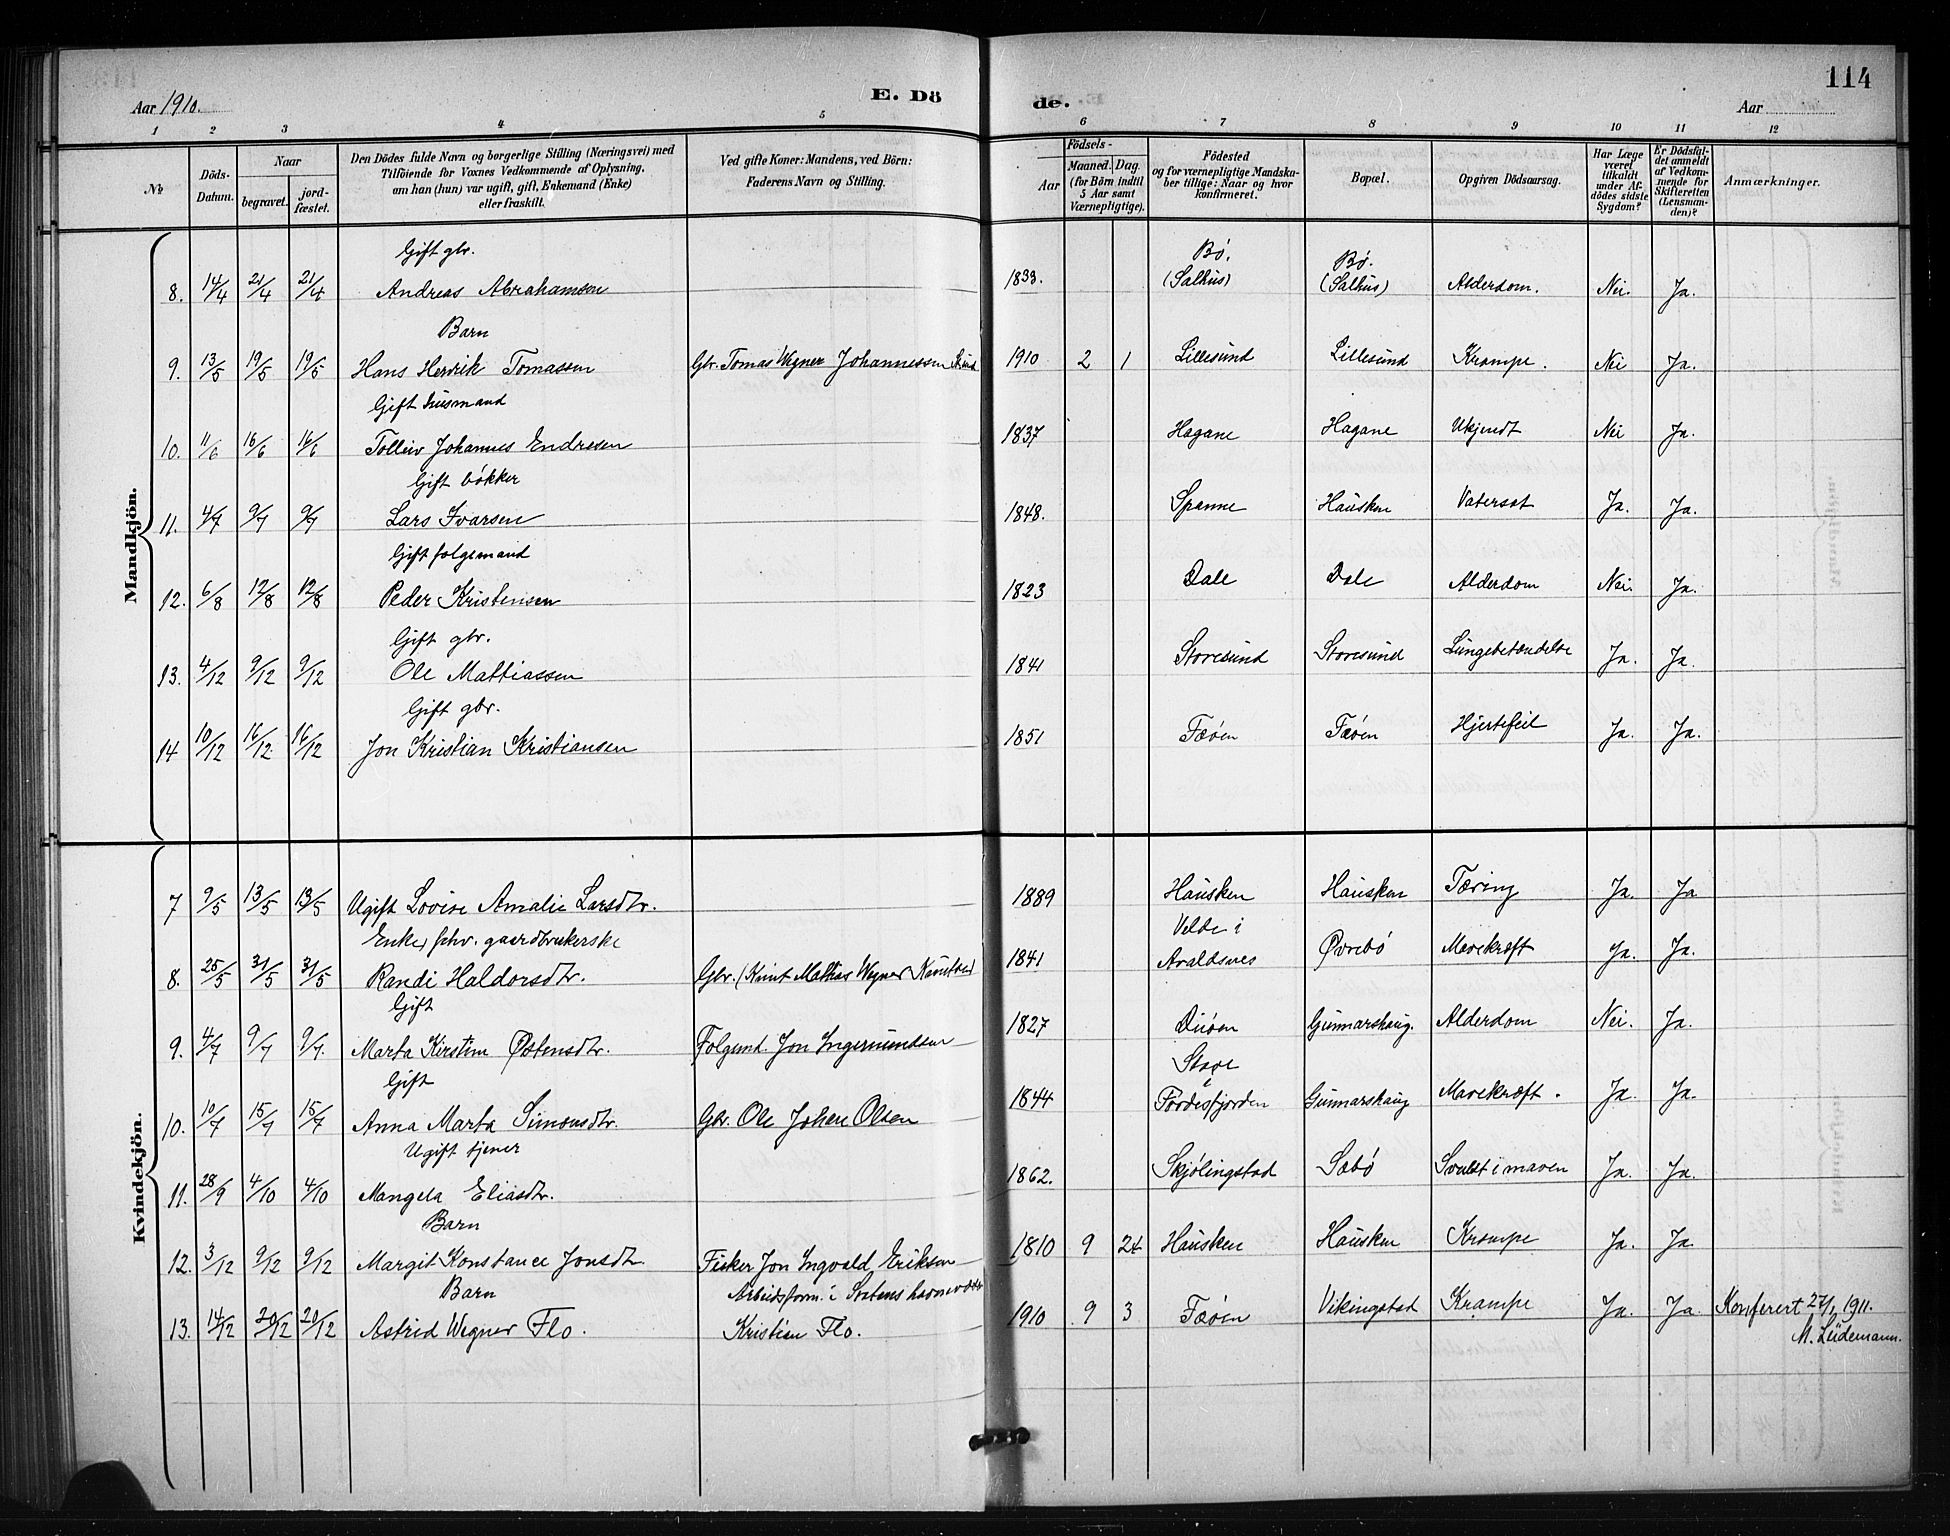 114
Aar 1910.
E. Dö
de.
Aar
1 2 3 4 5 6 7 8 9 10 11 12
No
Döds-Datum.
Naar
begravet.
jord-fæstet.
Den Dödes fulde Navn og borgerlige Stilling (Næringsvei) med
Tilföiende for Voxnes Vedkommende af Oplysning,
om han (hun) var ugift, gift, Enkemand (Enke)
eller fraskilt.
Ved gifte Koner: Mandens, ved Börn:
Faderens Navn og Stilling.
Födsels-
Aar
Maaned.
Dag.
(for Börn indtil
5 Aar samt
Værnepligtige).
Födested
og for værnepligtige Mandska-
ber tillige: Naar og hvor
konfirmeret.
Bopæl.
Opgiven Dödsaarsag.
Har Læge
været
tilkaldt
under Af-
dödes sidste
Sygdom?
Er Dödsfal-
det anmeldt
af Vedkom-
mende for
Skifteretten
(Lensman-
den)?
Anmærkninger.
Mandkjön.
Gift gbr. Bø, Bø.
8. 14/4 21/4 21/4 Andreas Abrahamsen 1833. (Salhus) (Salhus) Alderdom. Nei. Ja.
Barn
9. 13/5 19/5 19/5 Hans Henrik Tomassen Gbr. Tomas Wegner Johannessen 1910 2 1 Lillesund Lillesund Krampe. Nei Ja.
Gift husmand
10. 11/6 16/6 16/6 Tolleiv Johannes Endresen 1837 Hagane Hagane Ukjendt Nei Ja.
Gift bøkker
11. 4/7 9/7 9/7 Lars Ivarsen 1848. Spanne Hausken Vatersot Ja. Ja.
Gift folgemand
12. 6/8 12/8 12/8 Peder Kristensen 1823 Dale Dale Alderdom Nei. Ja.
Gift gbr.
13. 4/12 9/12 9/12 Ole Mattiassen 1841 Storesund Storesund Lungebetændelse Ja. Ja.
Gift gbr.
14 10/12 16/12 16/12 Jon Kristian Kristiansen 1851 Fæøen Fæøen Hjertefeil Ja. Ja.
Kvindekjön.
7 9/5 13/5 13/5 Ugift Lovise Amalie Larsdtr. 1889 Hausken Hausken Tæring Ja. Ja
Enke, fhv. gaardbrukerske Velde i
8. 25/5 31/5 31/5 Randi Haldorsdtr. Gbr. (Knut Mathias Wegner Knutsen) 1841 Avaldsnes Øvrebø Marekræft Ja. Ja.
Gift
9. 4/7 9/7 9/7. Marta Kirstine Østensdtr. Folgemd. Jon Ingemundsen 1827 Diøen Gunnarshaug. Alderdom Nei. Ja.
Gift
10. 10/7 15/7 15/7 Anna Marta Simonsdtr. Gbr. Ole Johan Olsen 1844 Førdesfjorden Gunnarshaug Mavekræft. Ja. Ja.
Ugift tjener
11. 28/9 4/10 4/10 Mangela Eliasdtr. 1862. Skjølingstad Sæbø Svulst i maven Ja. Ja.
Barn
12. 3/12 9/12 9/12 Margit Konstance Jonsdtr. Fisker Jon Ingvald Eriksen 1810 9 24 Hausken Hausken Krampe Ja. Ja
Barn Arbeidsform. i Statens havnevæsen
13. 14/12 20/12 20/12 Astrid Wegner Flo. Kristian Flo. 1910 9 3 Fæøen Vikingstad Krampe Ja. Ja. Konferert 27/1 1911.
M. Lüdemann.